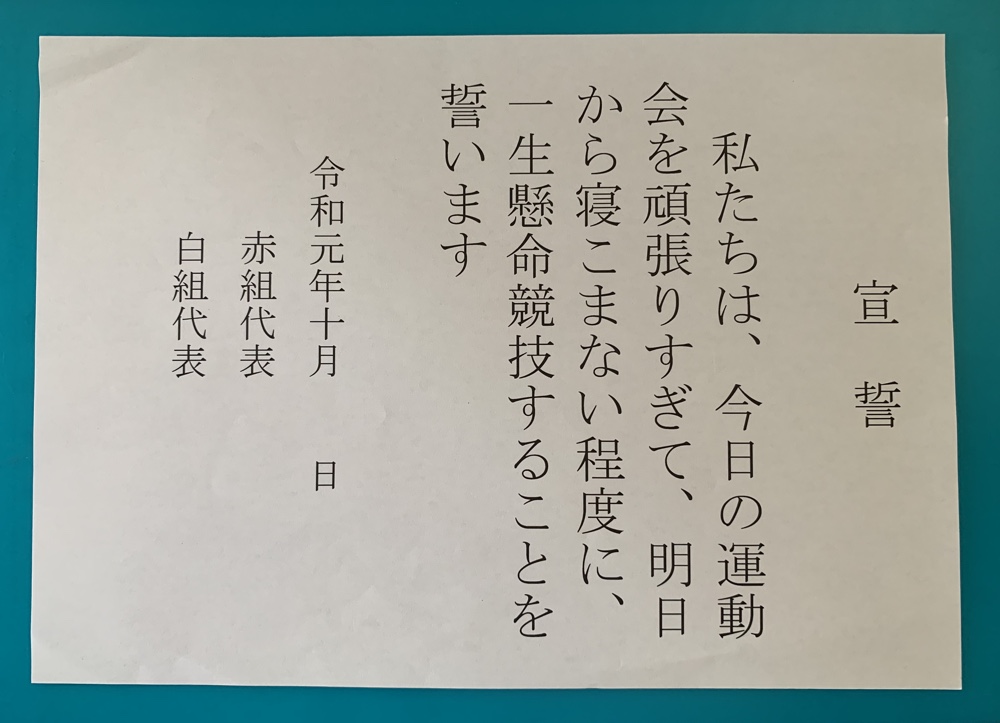 宣誓
私たちは、今日の運動
会を頑張りすぎて、明日
から寝こまない程度に、
一生懸命競技することを
誓います
令和元年十月　　日
赤組代表
白組代表